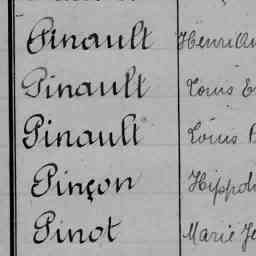 Pinault Henri
Pinault Louis
Pinault Louis
Pinçon
Pinot Marie